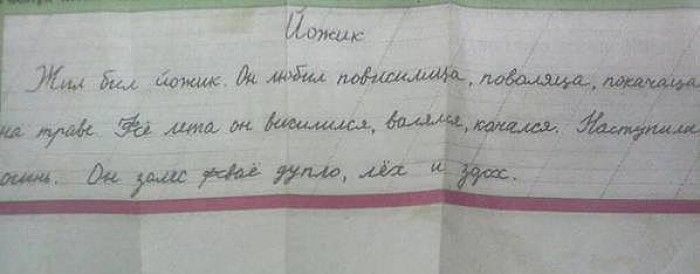 Йожик
Жил был йожик. Он любил повисилица, поволяца, покачаца
на траве. Всё лета он висилился, валялся, качался. Наступила
осинь. Он залес всваё дупло, лёх и здох.